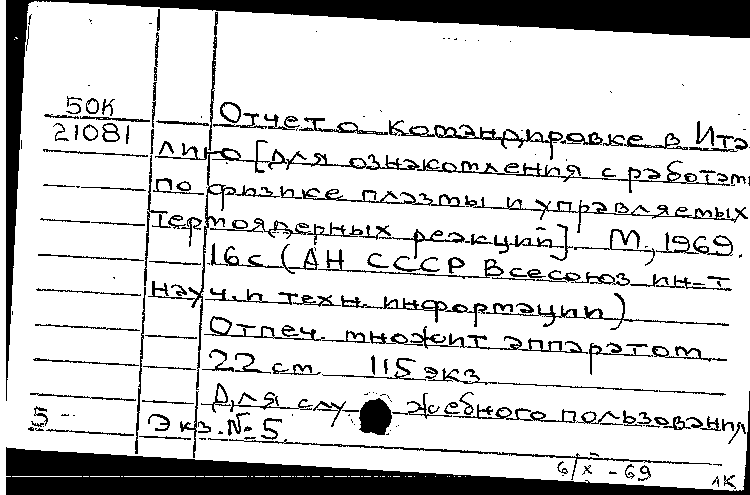 50К
21081
Отчет о командировке в Ита
лию [для ознакомления с работам
по физике плазмы и управляемых
термоядерных реакций]. М., 1969.
16с (АН СССР Всесоюз ин-т
науч. и техн. информации)
Отпеч. множит аппаратом
22 см 115 экз
Для служебного пользования
5
Экз. № 5.
6/X - 69
АК